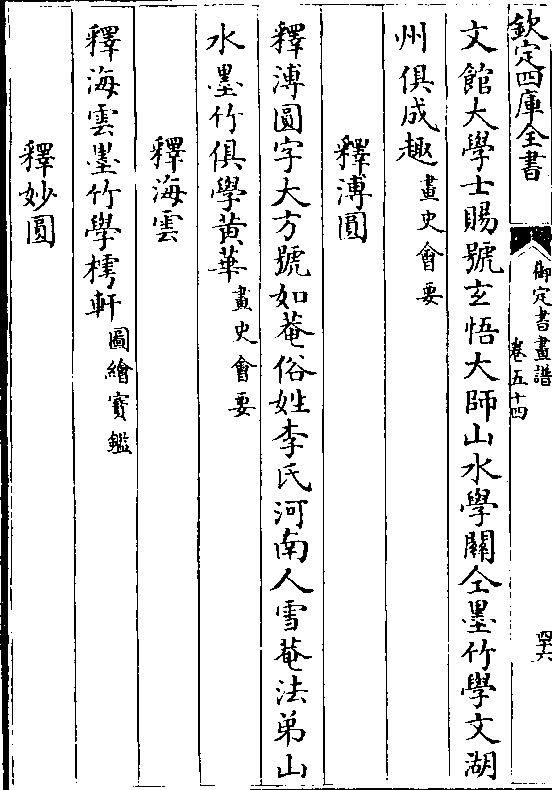 欽定四庫全書
御定書畫譜
卷五十四
四六
文館大學士賜號玄悟大師山水學關仝墨竹學文湖
州俱成趣畫史會要
釋溥圓
釋溥圓字大方號如菴俗姓李氏河南人雪菴法弟山
水墨竹俱學黄華畫史會要
釋海雲
釋海雲墨竹學樗軒圖繪寳鑑
釋妙圓